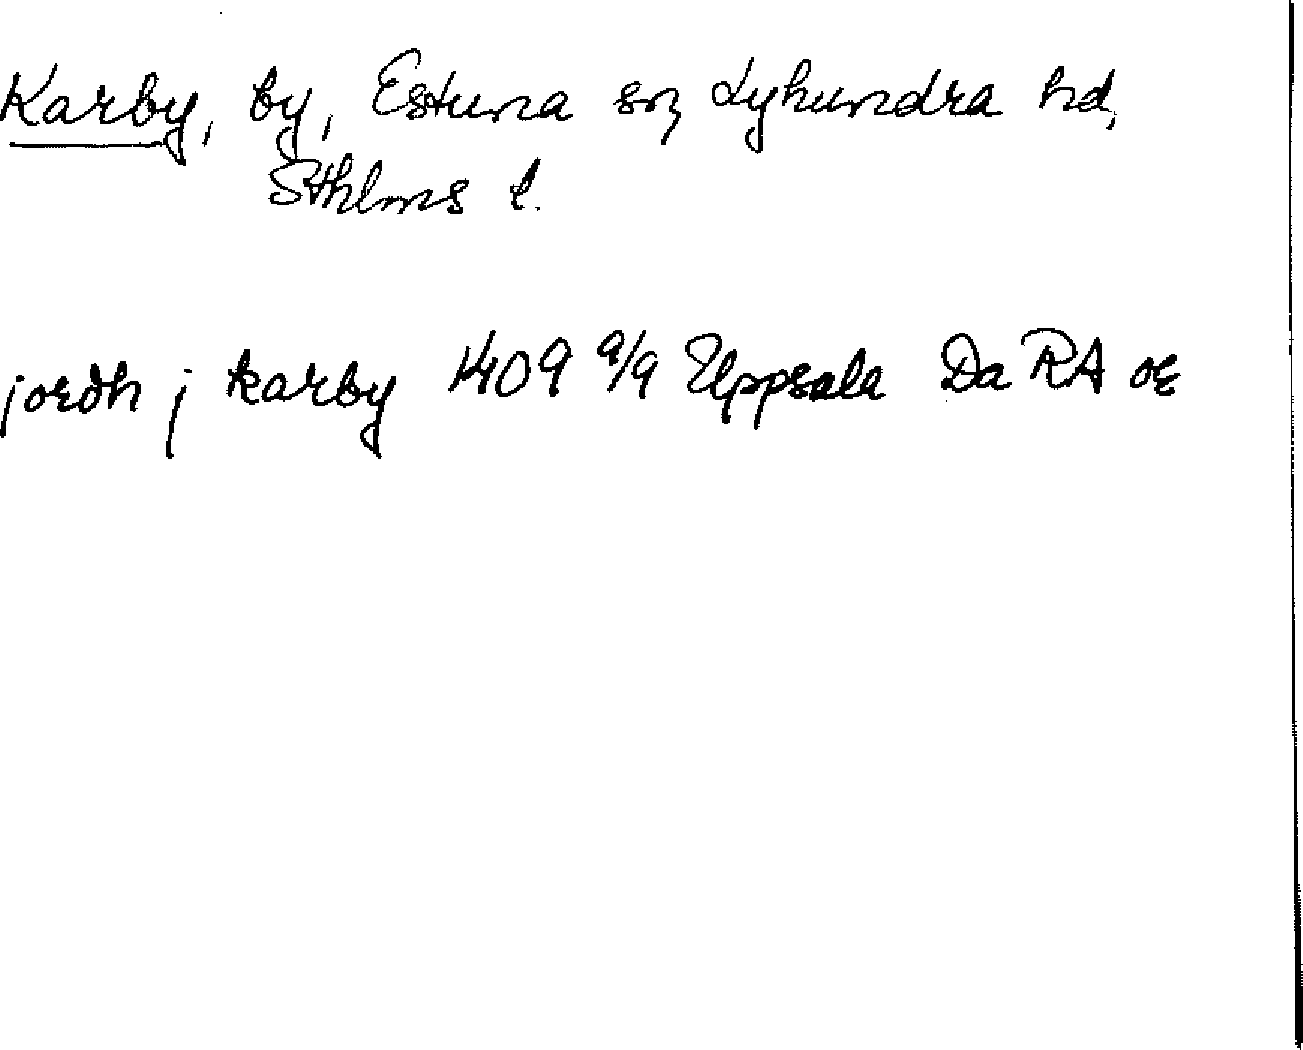 Karby, by, Estuna sn, Lyhundra hd,
Sthlms l.
jordh j karby 1409 9/9 Uppsala Da RA or